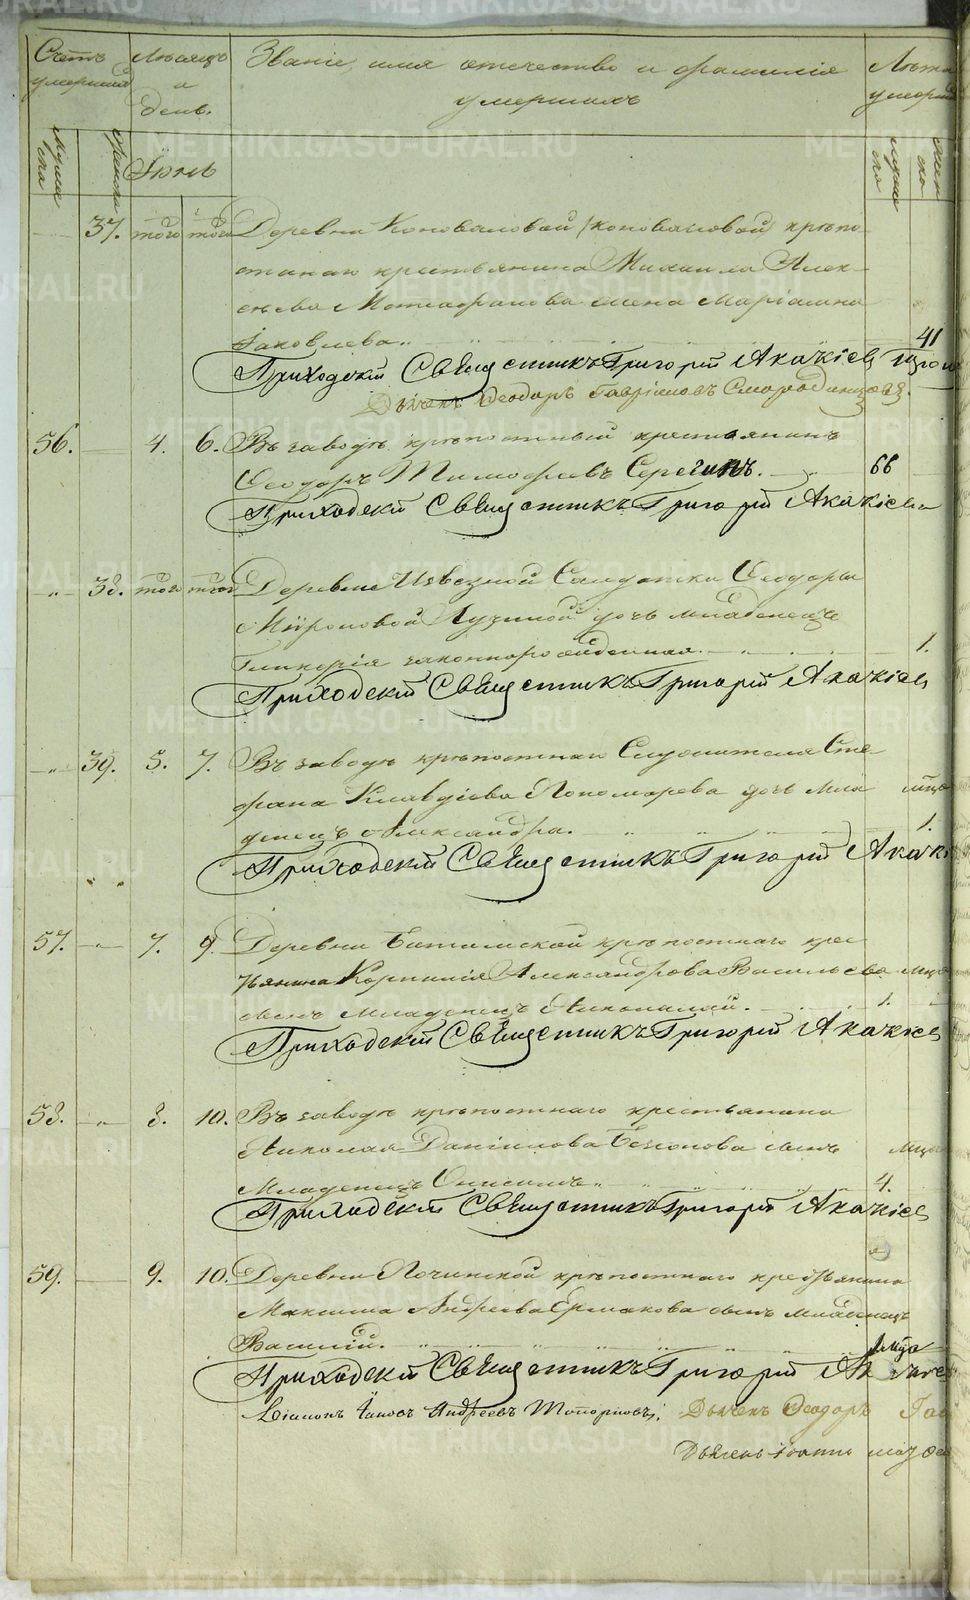 METRIKI.GASO-URAL.RU
Счетъ умершихъ
Мѣсяцъ и день.
Званіе, имя отечество и фамилія умершихъ
Лѣта умерш
мужеска
женска
Іюнь
мужеска
женска
37. того того Деревни Коноваловой (коноваловой) крѣпо-
стнаго крестьянина Михаила Алек-
сѣева жена Маріамна
Іаковлева. 41
Приходскій Священникъ Григорій Акакіевъ
Дьяченъ Ѳеодоръ Гавріиловъ Смородинцовъ.
56. 4. 6. Въ заводѣ крѣпостный крестьянинъ
Ѳеодоръ Тимофѣевъ Серегинъ. 66
Приходскій Священникъ Григорій Акакіевъ
38. того того Деревни Извезной Солдатки Ѳеодоры
Мироновой дочь младенецъ
Гликерія законнорожденная. 1.
Приходскій Священникъ Григорій Акакіев
39. 5. 7. Въ заводѣ крѣпостнаго Служителя Сте
фана Клавдіева Пономарева дочь мла мѣся
денецъ Александра. 1.
Приходскій Священникъ Григорій Акакі
57. 7. 9. Деревни Битимской крѣпостнаго крес
тьянина Корнилія Александрова Васильева мѣся
сынъ младенецъ Николай. 1.
Приходскій Священникъ Григорій Акакіев
58. 8. 10. Въ заводѣ крѣпостнаго крестьянина
Николая Даніилова сынъ мѣся
Младенецъ Онисимъ 4.
Приходскій Священникъ Григорій Акакіев
59. 9. 10. Деревни Починской крѣпостнаго крестьянина
Максима Андреева Ермакова сынъ младенецъ
Василій. мѣся
Приходскій Священникъ Григорій Ак
Діаконъ Андреевъ Топорковъ; Дьячекъ Ѳеодоръ Гав
Дьячекъ Іоаннъ